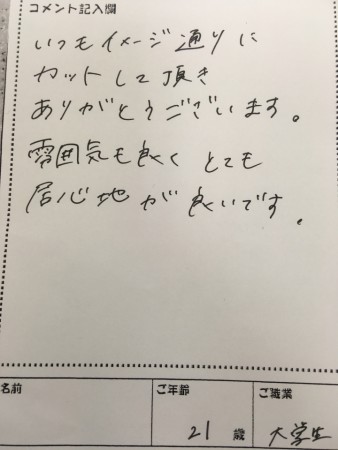 コメント記入欄
いつもイメージ通りに
カットして頂き
ありがとうございます。
雰囲気も良く とても
居心地が良いです。
名前
ご年齢
ご職業
21 歳
大学生